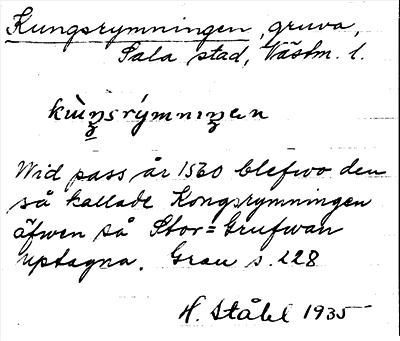 Kungsrymningen, gruva,
Sala stad, Västm. l.
kùŋsrýmniŋen
Wid pass år 1560 blefwo den
så kallade Kongsrymningen
äfwen så Stor=Grufwan
uptagna. Grau s. 228
H. Ståhl 1935